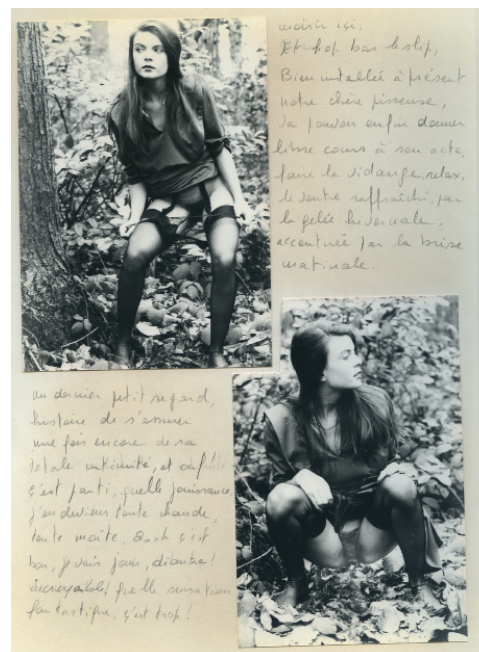 moisir ici.
Et hop bas le slip,
Bien installée à présent
notre chère pisseuse,
va pouvoir enfin donner
libre cours à son acte,
faire la vidange, relax,
le ventre raffraîchi, par
la gelée hivernale,
accentuée par la brise
matinale.
un dernier petit regard,
histoire de s'assurer
une fois encore de sa
totale intimité, et
c'est parti, quelle jouissance,
j'en deviens toute chaude,
toute moite, c'est
bon, je vais jouir, diantre!
incroyable! quelle sensation
fantastique, c'est trop!